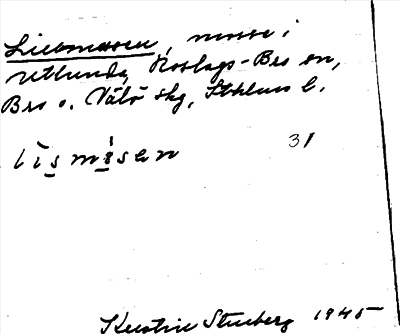 Liesmossen, mosse i
Utlunda, Roslags-Bro sn,
Bro o. Vätö skg, Sthlms l.
lismåsen 31
Kerstin Stenberg 1945